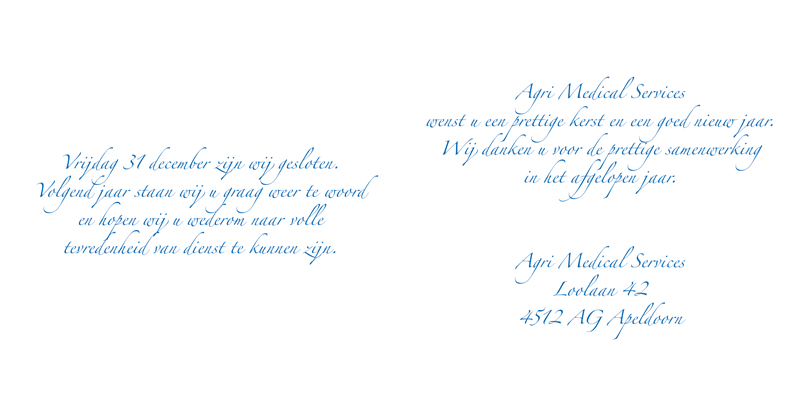 Vrijdag 31 december zijn wij gesloten.
Volgend jaar staan wij u graag weer te woord
en hopen wij u wederom naar volle
tevredenheid van dienst te kunnen zijn.
Agri Medical Services
wenst u een prettige kerst en een goed nieuw jaar.
Wij danken u voor de prettige samenwerking
in het afgelopen jaar.
Agri Medical Services
Loolaan 42
4512 AG Apeldoorn